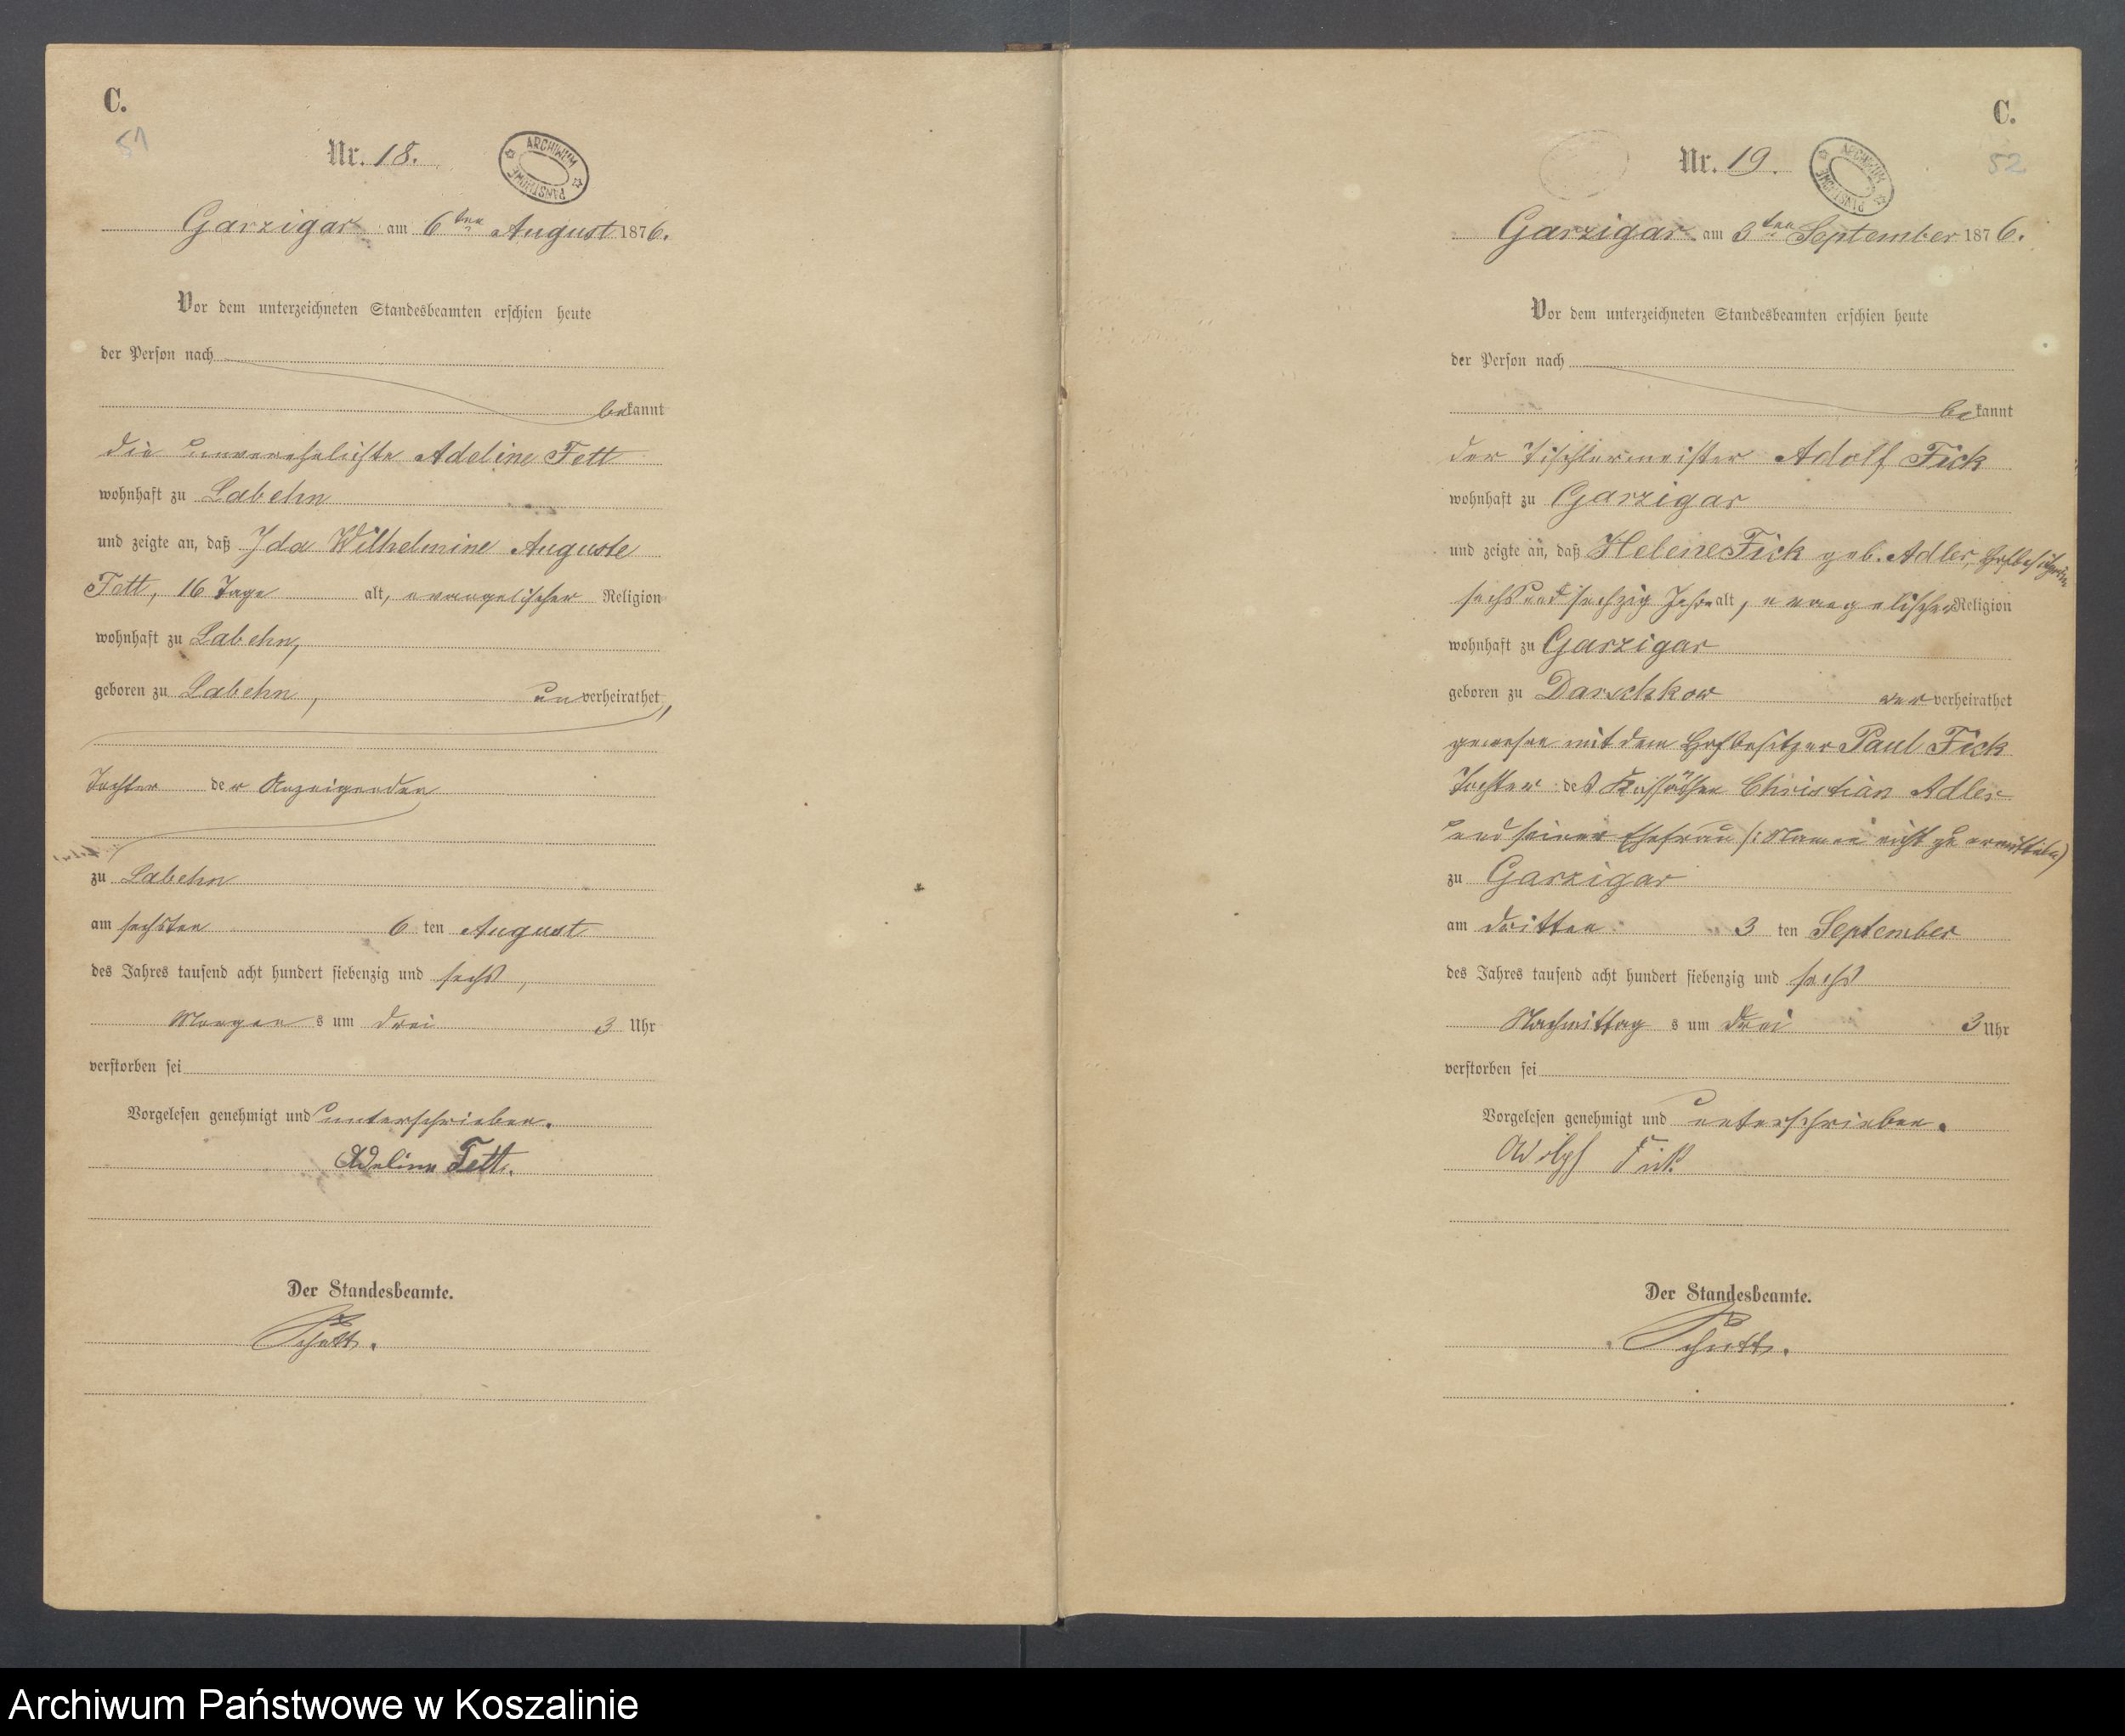 C.
51
Nr. 18.
ARCHIWUM PAŃSTWOWE
Garzigar am 6ten August 1876.
Vor dem unterzeichneten Standesbeamten erschien heute
der Person nach
bekannt
die unverehelichte Adeline Fett
wohnhaft zu Labehn
und zeigte an, daß Ida Wilhelmine Auguste
Fett, 16 Tage alt, evangelischer Religion
wohnhaft zu Labehn,
geboren zu Labehn, unverheirathet,
Tochter der Anzeigenden
zu Labehn
am sechsten 6 ten August
des Jahres tausend acht hundert siebenzig und sechs,
Morgens um drei 3 Uhr
verstorben sei
Vorgelesen genehmigt und unterschrieben.
Adeline Fett.
Der Standesbeamte.
C.
52
Nr. 19.
ARCHIWUM PAŃSTWOWE
Garzigar am 3ten September 1876.
Vor dem unterzeichneten Standesbeamten erschien heute
der Person nach
bekannt
der Tischlermeister Adolf Fick
wohnhaft zu Garzigar
und zeigte an, daß Helene Fick geb. Adler,
sechs und sechzig Jahre alt, evangelischer Religion
wohnhaft zu Garzigar
geboren zu Darschkow verheirathet
gewesen mit dem Hofbesitzer Paul Fick
Tochter des Kossäthen Christian Adler
und seiner Ehefrau /: Namen nicht zu ermitteln)
zu Garzigar
am dritten 3 ten September
des Jahres tausend acht hundert siebenzig und sechs
Nachmittags um drei 3 Uhr
verstorben sei
Vorgelesen genehmigt und unterschrieben.
Adolf Fick
Der Standesbeamte.
Archiwum Państwowe w Koszalinie